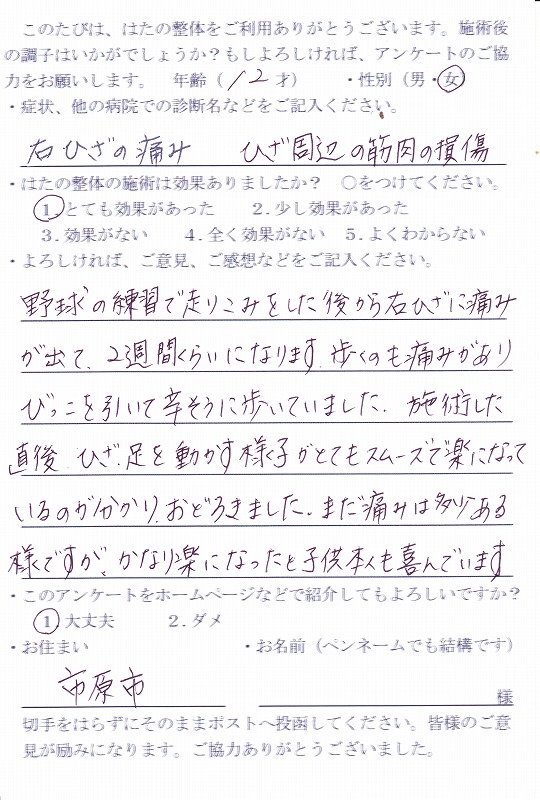 このたびは、はたの整体をご利用ありがとうございます。施術後
の調子はいかがでしょうか？もしよろしければ、アンケートのご協
力をお願いします。 年齢（12才） ・性別（男・女）
・症状、他の病院での診断名などをご記入ください。
右ひざの痛み ひざ周辺の筋肉の損傷
・はたの整体の施術は効果ありましたか？ ○をつけてください。
1.とても効果があった 2.少し効果があった
3.効果がない 4.全く効果がない 5.よくわからない
・よろしければ、ご意見、ご感想などをご記入ください。
野球の練習で走りこみをした後から右ひざに痛み
が出て、2週間くらいになります。歩くのも痛みがあり
びっこを引いて辛そうに歩いていました。施術した
直後、ひざ、足を動かす様子がとてもスムーズで楽になって
いるのが分かり、おどろきました。まだ痛みは多少ある
様ですが、かなり楽になったと子供本人も喜んでいます
・このアンケートをホームページなどで紹介してもよろしいですか？
1.大丈夫 2.ダメ
・お住まい ・お名前（ペンネームでも結構です）
市原市 様
切手をはらずにそのままポストへ投函してください。皆様のご意
見が励みになります。ご協力ありがとうございました。